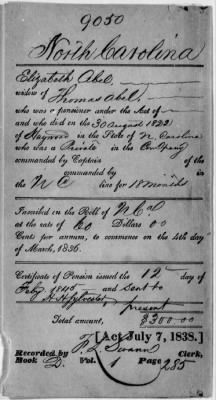 9050
North Carolina
Elizabeth Abel
widow of Thomas Abel
who was a pensioner under the Act of
and who died on the 30 August 1822
of Haywood in the State of N Carolina
who was a Private in the Company
commanded by Captain of the
commanded by in the
the N C line for 18 months
Inscribed on the Roll of N Ca
at the rate of 60 Dollars 00
Cents per annum, to commence on the 4th day
of March, 1836.
Certificate of Pension issued the 12 day of
Feby 1845 and sent to
H. H. Sylvester
present
Total amount, $300.00
[Act July 7, 1838.]
Recorded by Clerk,
Book D. Vol. 1 Page 285